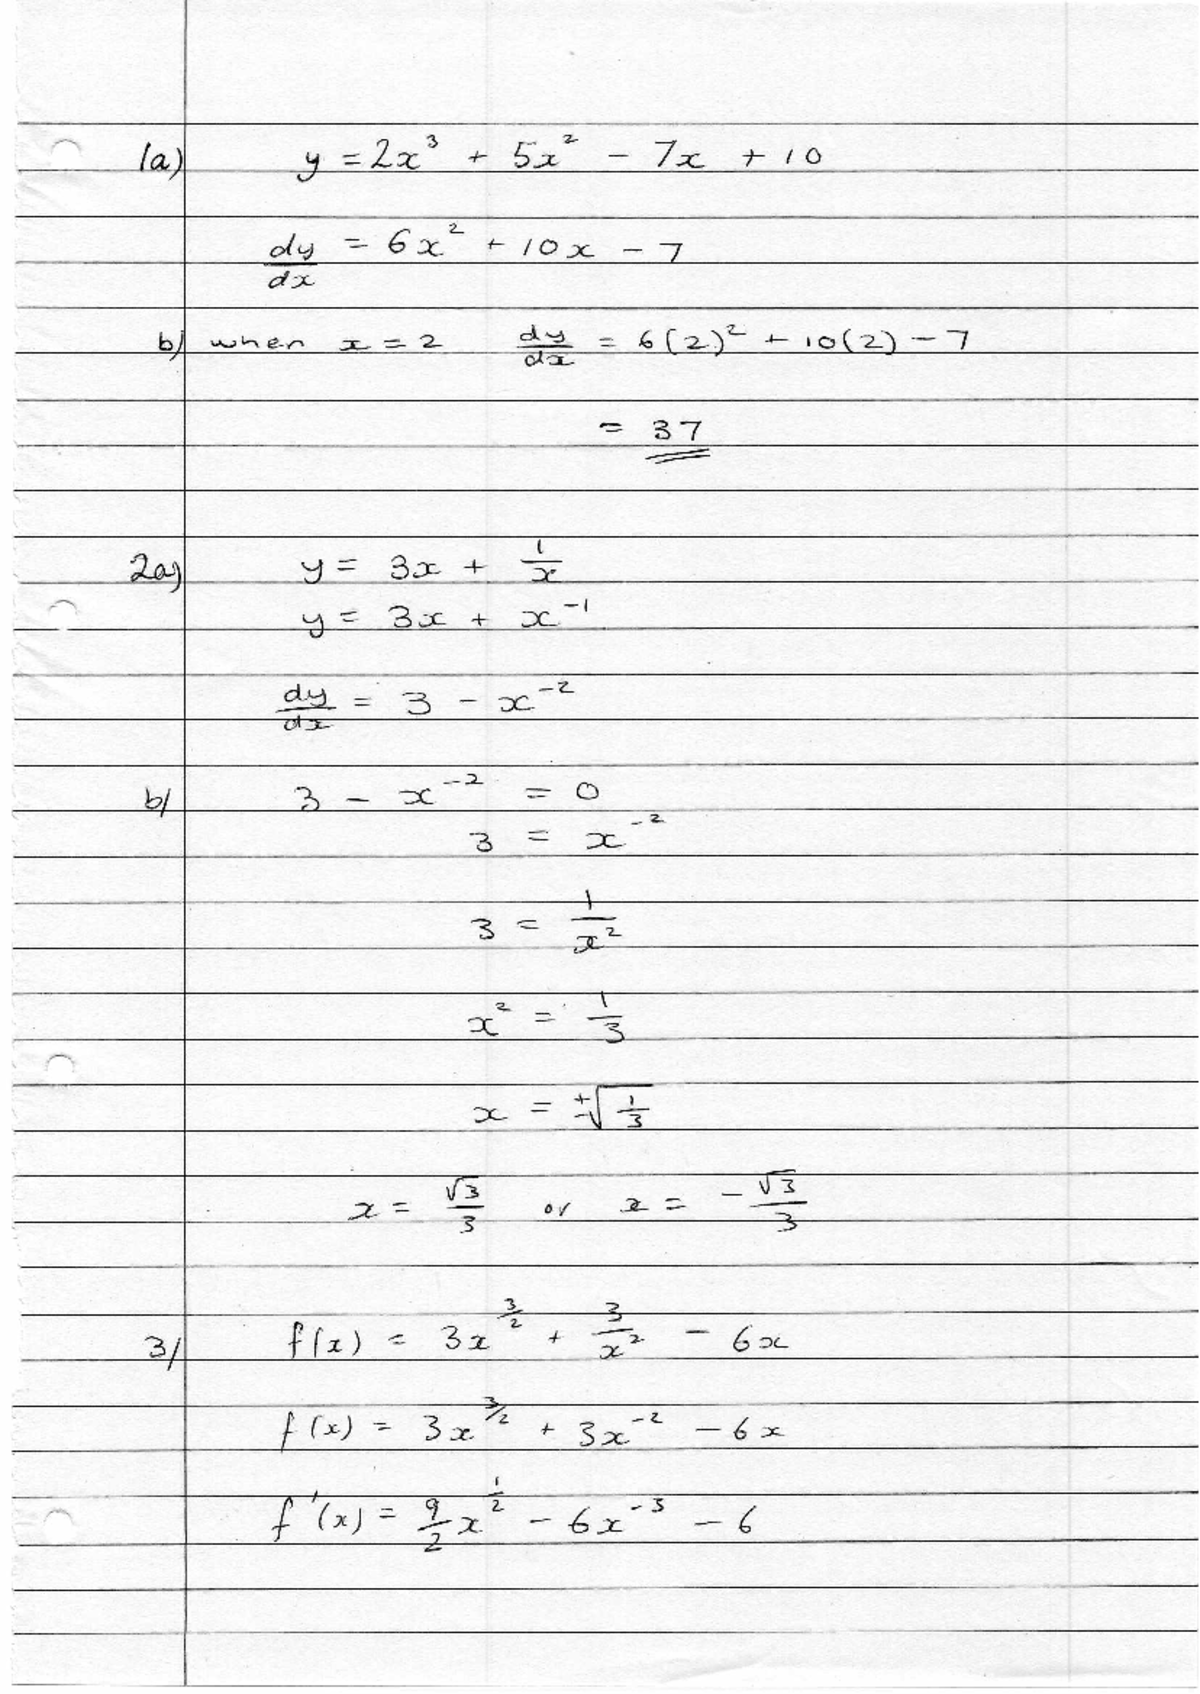 1a) y = 2x³ + 5x² - 7x + 10
dy/dx = 6x² + 10x - 7
b) when x = 2 dy/dx = 6(2)² + 10(2) - 7
= 37
2a) y = 3x + 1/x
y = 3x + x⁻¹
dy/dx = 3 - x⁻²
b/ 3 - x⁻² = 0
3 = x⁻²
3 = 1/x²
x² = 1/3
x = ±√(1/3)
x = √3/3 or x = -√3/3
3/ f(x) = 3x^(3/2) + 3/x² - 6x
f(x) = 3x^(3/2) + 3x⁻² - 6x
f'(x) = 9/2 x^(1/2) - 6x⁻³ - 6